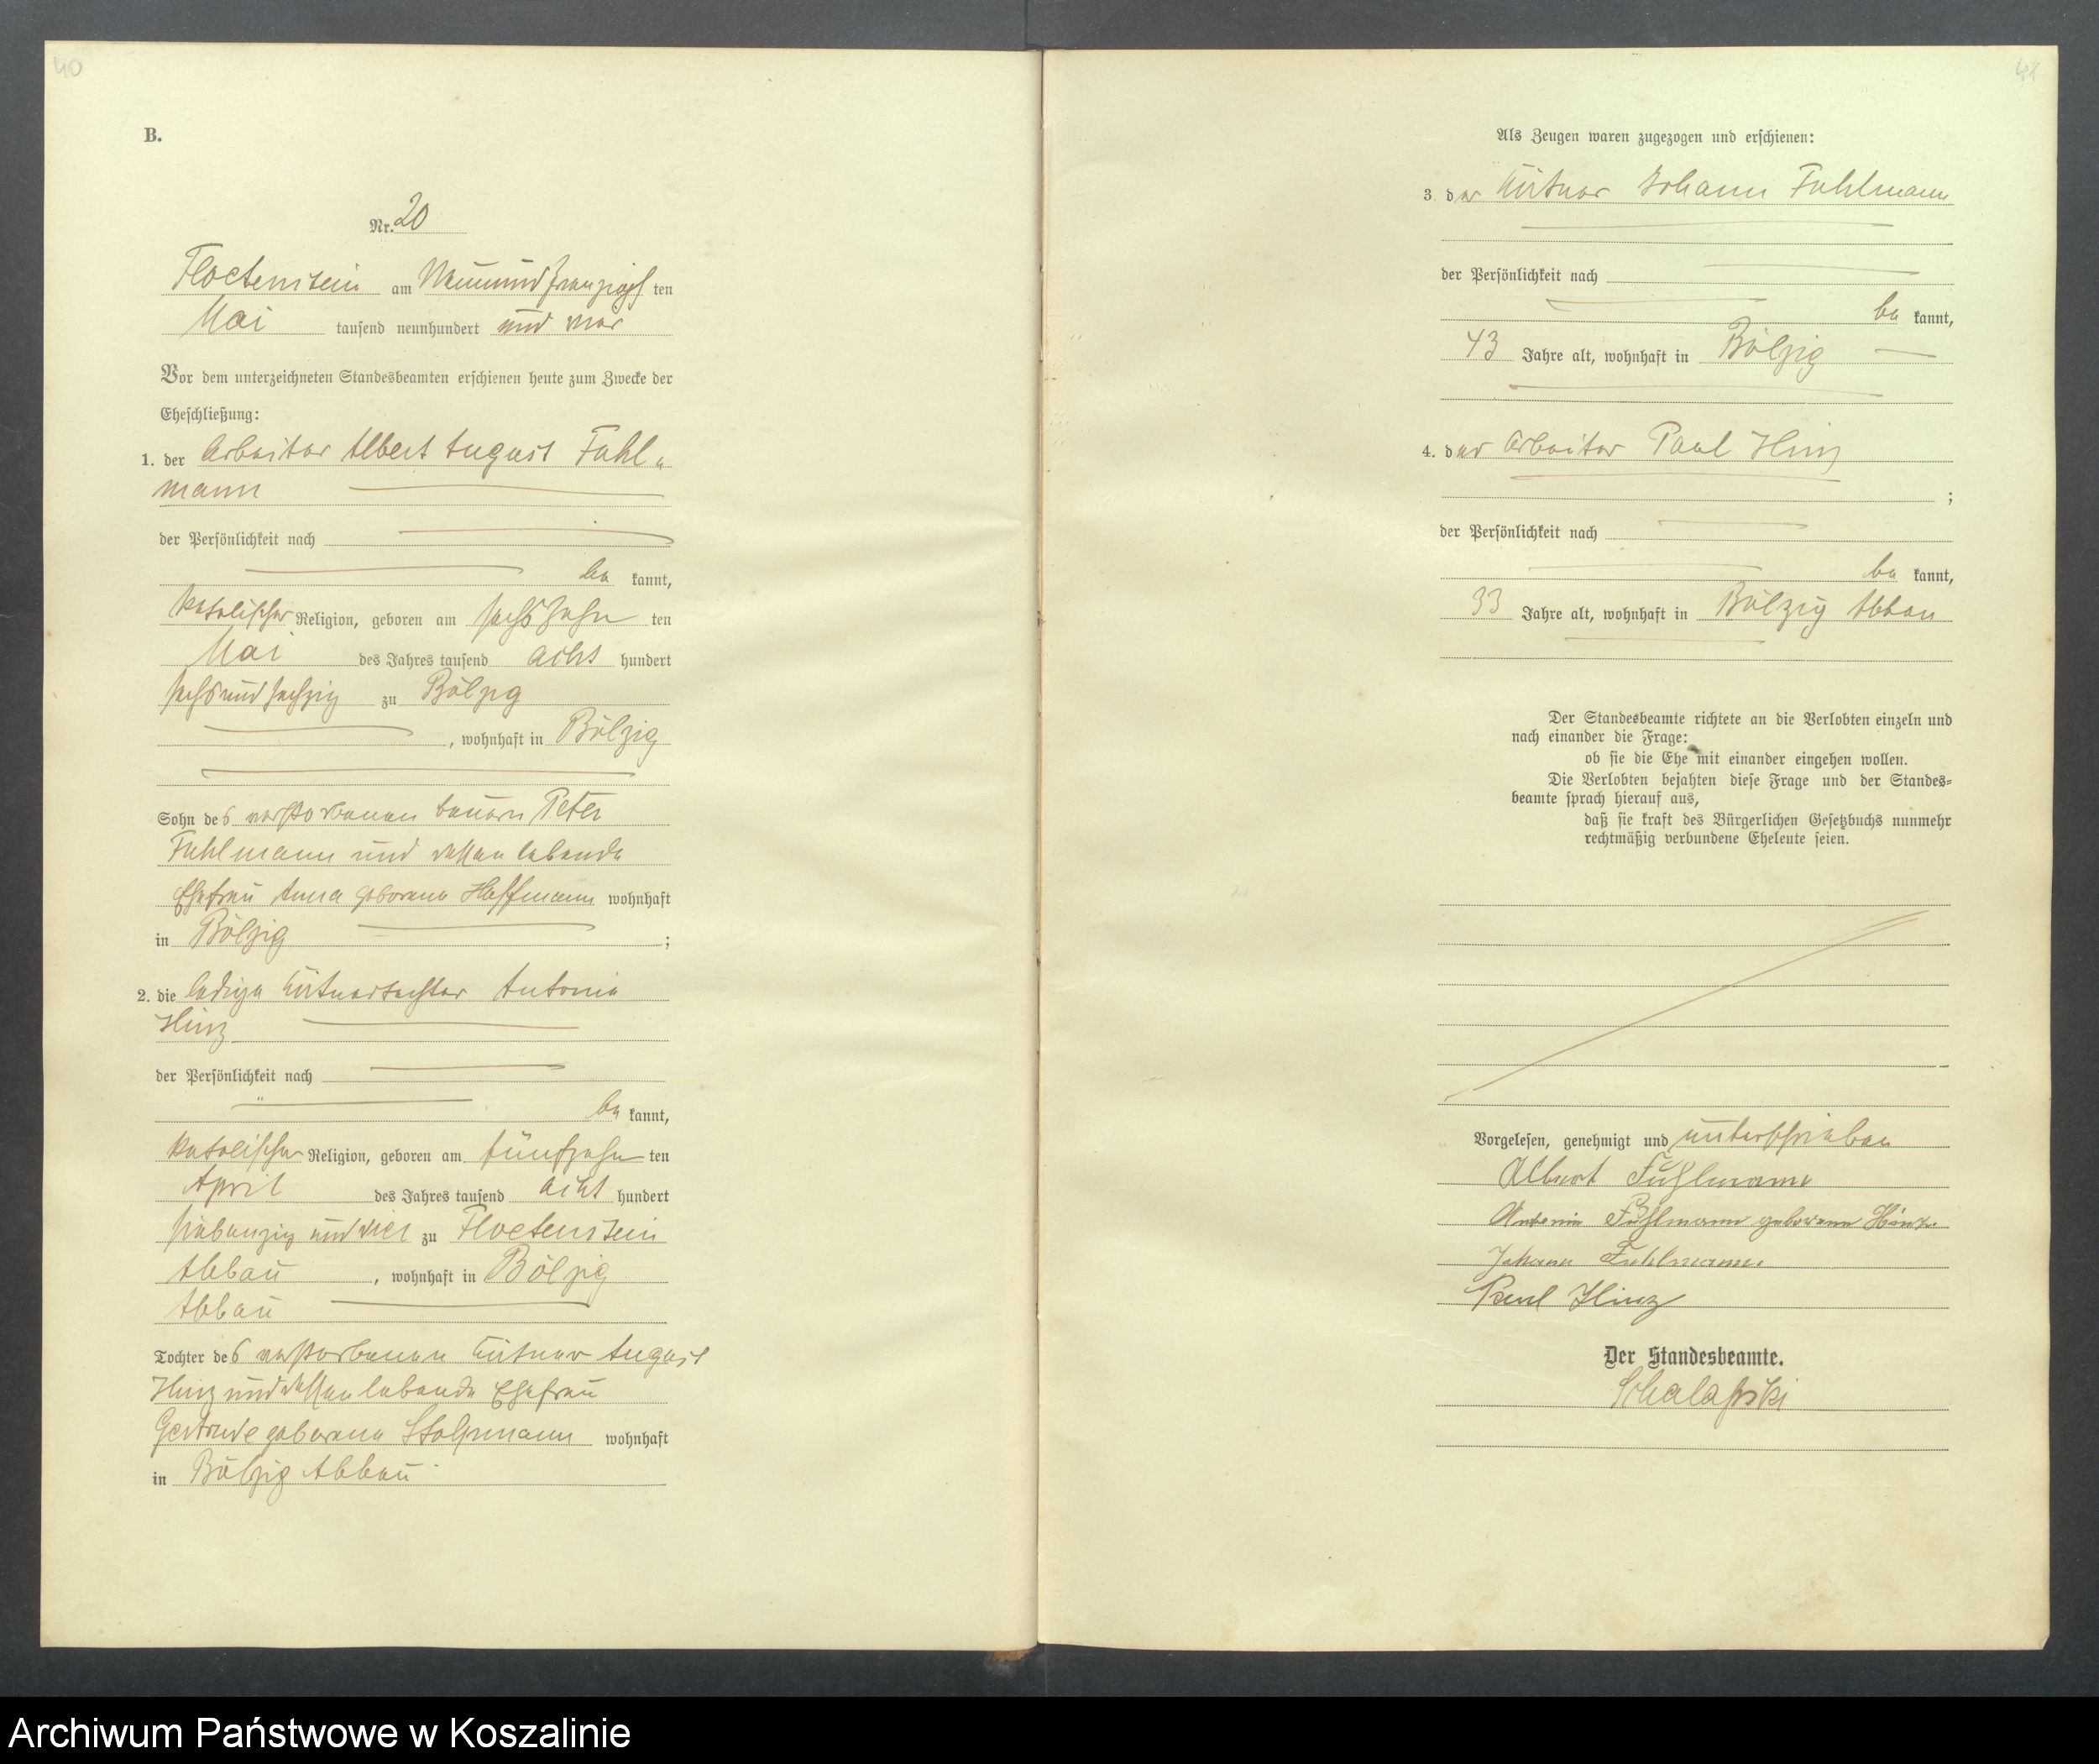 40
B.
Nr. 20
Floetenstein am Neunundzwanzigsten
Mai tausend neunhundert und vier
Vor dem unterzeichneten Standesbeamten erschienen heute zum Zwecke der
Eheschließung:
1. der Arbeiter Albert August Fuhl-
mann
der Persönlichkeit nach
be kannt,
katolischer Religion, geboren am sechszehn ten
Mai des Jahres tausend acht hundert
sechsundsechzig zu Bölzig
, wohnhaft in Bölzig
Sohn des verstorbenen Bauern Peter
Fuhlmann und dessen lebende
Ehefrau Anna geborene Hoffmann wohnhaft
in Bölzig ;
2. die ledige Bütnertochter Antonie
Hinz
der Persönlichkeit nach
be kannt,
katolischer Religion, geboren am fünfzehn ten
April des Jahres tausend acht hundert
siebenzig und vier zu Floetenstein
Abbau , wohnhaft in Bölzig
Abbau
Tochter des verstorbenen Bütner August
Hinz und dessen lebende Ehefrau
Gertrude geborene Stolpmann wohnhaft
in Bölzig Abbau
41
Als Zeugen waren zugezogen und erschienen:
3. der Bütner Johann Fuhlmann
der Persönlichkeit nach
be kannt,
43 Jahre alt, wohnhaft in Bölzig
4. der Arbeiter Paul Hinz
;
der Persönlichkeit nach
be kannt,
33 Jahre alt, wohnhaft in Bölzig Abbau
Der Standesbeamte richtete an die Verlobten einzeln und
nach einander die Frage:
ob sie die Ehe mit einander eingehen wollen.
Die Verlobten bejahten diese Frage und der Standes-
beamte sprach hierauf aus,
daß sie kraft des Bürgerlichen Gesetzbuchs nunmehr
rechtmäßig verbundene Eheleute seien.
Vorgelesen, genehmigt und unterschrieben
Albert Fuhlmann
Antonie Fuhlmann geborene Hinz
Johann Fuhlmann
Paul Hinz
Der Standesbeamte.
Archiwum Państwowe w Koszalinie